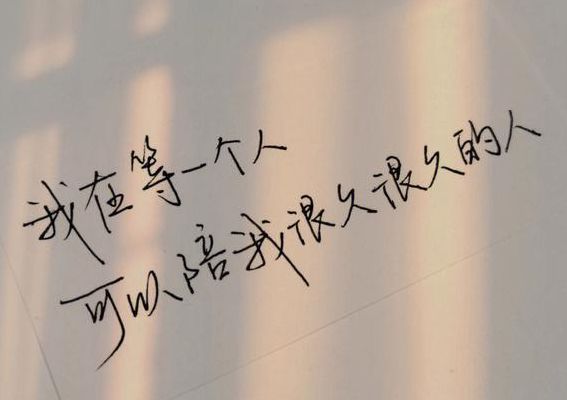 我在等一个人
可以陪我很久很久的人